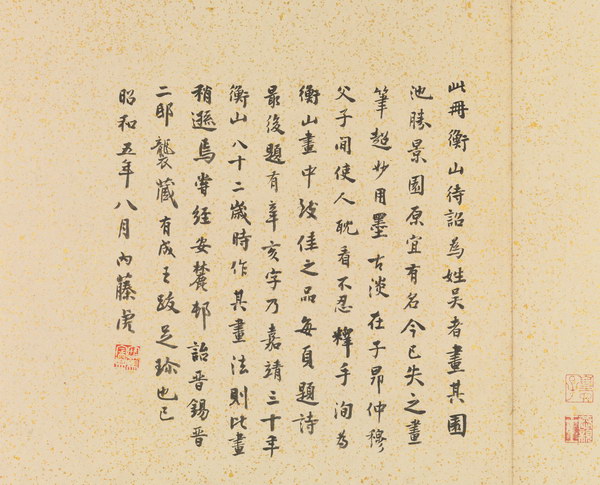 此冊衡山待詔為姓吳者畫其園
池勝景園原宜有名今已失之畫
筆超妙用墨古淡在子昂仲穆
父子間使人耽看不忍釋手洵為
衡山畫中佳之品每頁題詩
最後題有辛亥字乃嘉靖三十年
衡山八十二歲時作其書法則比畫
稍遜焉嘗經安麓邨詒晉錫晉
二邸襲藏有成王跋足珍也已
昭和五年八月內藤虎